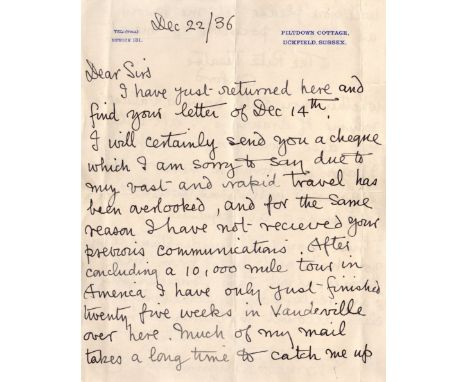 Dec 22/36
TELEPHONE
PILTDOWN COTTAGE,
UCKFIELD, SUSSEX.
Dear Sirs
I have just returned here and
find your letter of Dec 14th.
I will certainly send you a cheque
which I am sorry to say due to
my vast and rapid travel has
been overlooked, and for the same
reason I have not recieved your
previous communications. After
concluding a 10,000 mile tour in
America I have only just finished
twenty five weeks in Vaudeville
over here. Much of my mail
takes a long time to catch me up